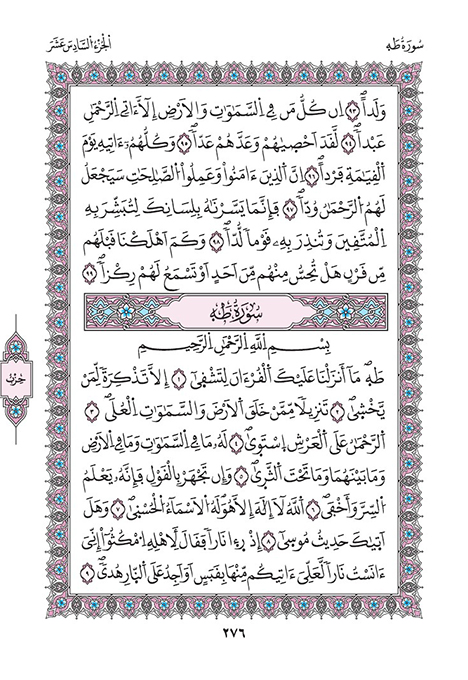 سُورَةُ طَهَ
اَلْجُزْءُ السَّادِسَ عَشَرَ
وَلَداًۖ ٩٣ اِن كُلُّ مَن فِے اِ۬لسَّمَٰوَٰتِ وَالَارْضِ إِلَّآ ءَاتِے اِ۬لرَّحْمَٰنِ
عَبْداٗۖ ٩٤ لَّقَدَ اَحْص۪يٰهُمْ وَعَدَّهُمْ عَدّاٗۖ ٩٥ وَكُلُّهُمُۥٓ ءَاتِيهِ يَوْمَ
اَ۬لْقِيَٰمَةِ فَرْداًۖ ٩٦ اِنَّ اَ۬لذِينَ ءَامَنُواْ وَعَمِلُواْ اُ۬لصَّٰلِحَٰتِ سَيَجْعَلُ
لَهُمُ اُ۬لرَّحْمَٰنُ وُدّاٗۖ ٩٧ فَإِنَّمَا يَسَّرْنَٰهُ بِلِسَانِكَ لِتُبَشِّرَ بِهِ
اِ۬لْمُتَّقِينَ وَتُنذِرَ بِهِۦ قَوْماٗ لُّدّاٗۖ ٩٨ وَكَمَ اَهْلَكْنَا قَبْلَهُم
مِّن قَرْنٍ هَلْ تُحِسُّ مِنْهُم مِّنَ اَحَدٍ اَوْ تَسْمَعُ لَهُمْ رِكْزاًۖ ٩٩
سُورَةُ طَهَ
بِسْمِ اِ۬للَّهِ اِ۬لرَّحْمَٰنِ اِ۬لرَّحِيمِ
طَهۖ مَآ أَنزَلْنَا عَلَيْكَ اَ۬لْقُرْءَانَ لِتَشْق۪يٰٓ ١ إِلَّا تَذْكِرَةٗ لِّمَنْ
يَّخْش۪يٰۖ ٢ تَنزِيلاٗ مِّمَّنْ خَلَقَ اَ۬لَارْضَ وَالسَّمَٰوَٰتِ اِ۬لْعُلَيۖ ٣
اَ۬لرَّحْمَٰنُ عَلَى اَ۬لْعَرْشِ اِ۪سْتَو۪يٰۖ ٤ لَهُۥ مَا فِے اِ۬لسَّمَٰوَٰتِ وَمَا فِے اِ۬لَارْضِ
وَمَا بَيْنَهُمَا وَمَا تَحْتَ اَ۬لثَّر۪يٰۖ ٥ وَإِن تَجْهَرْ بِالْقَوْلِ فَإِنَّهُۥ يَعْلَمُ
اُ۬لسِّرَّ وَأَخْفَيۖ ٦ اَ۬للَّهُ لَآ إِلَٰهَ إِلَّا هُوَ لَهُ اُ۬لَاسْمَآءُ اُ۬لْحُسْن۪يٰۖ ٧ وَهَلَ
اَت۪يٰكَ حَدِيثُ مُوس۪يٰٓ ٨ إِذْ ر۪ء۪ا نَاراٗ فَقَالَ لِأَهْلِهِ اِ۟مْكُثُوٓاْ إِنِّيَ
ءَانَسْتُ نَاراٗ لَّعَلِّيَ ءَاتِيكُم مِّنْهَا بِقَبَسٍ اَوَ اَجِدُ عَلَى اَ۬لنّ۪ارِ هُديٗۖ ٩
حِزْبٌ
٢٧٦